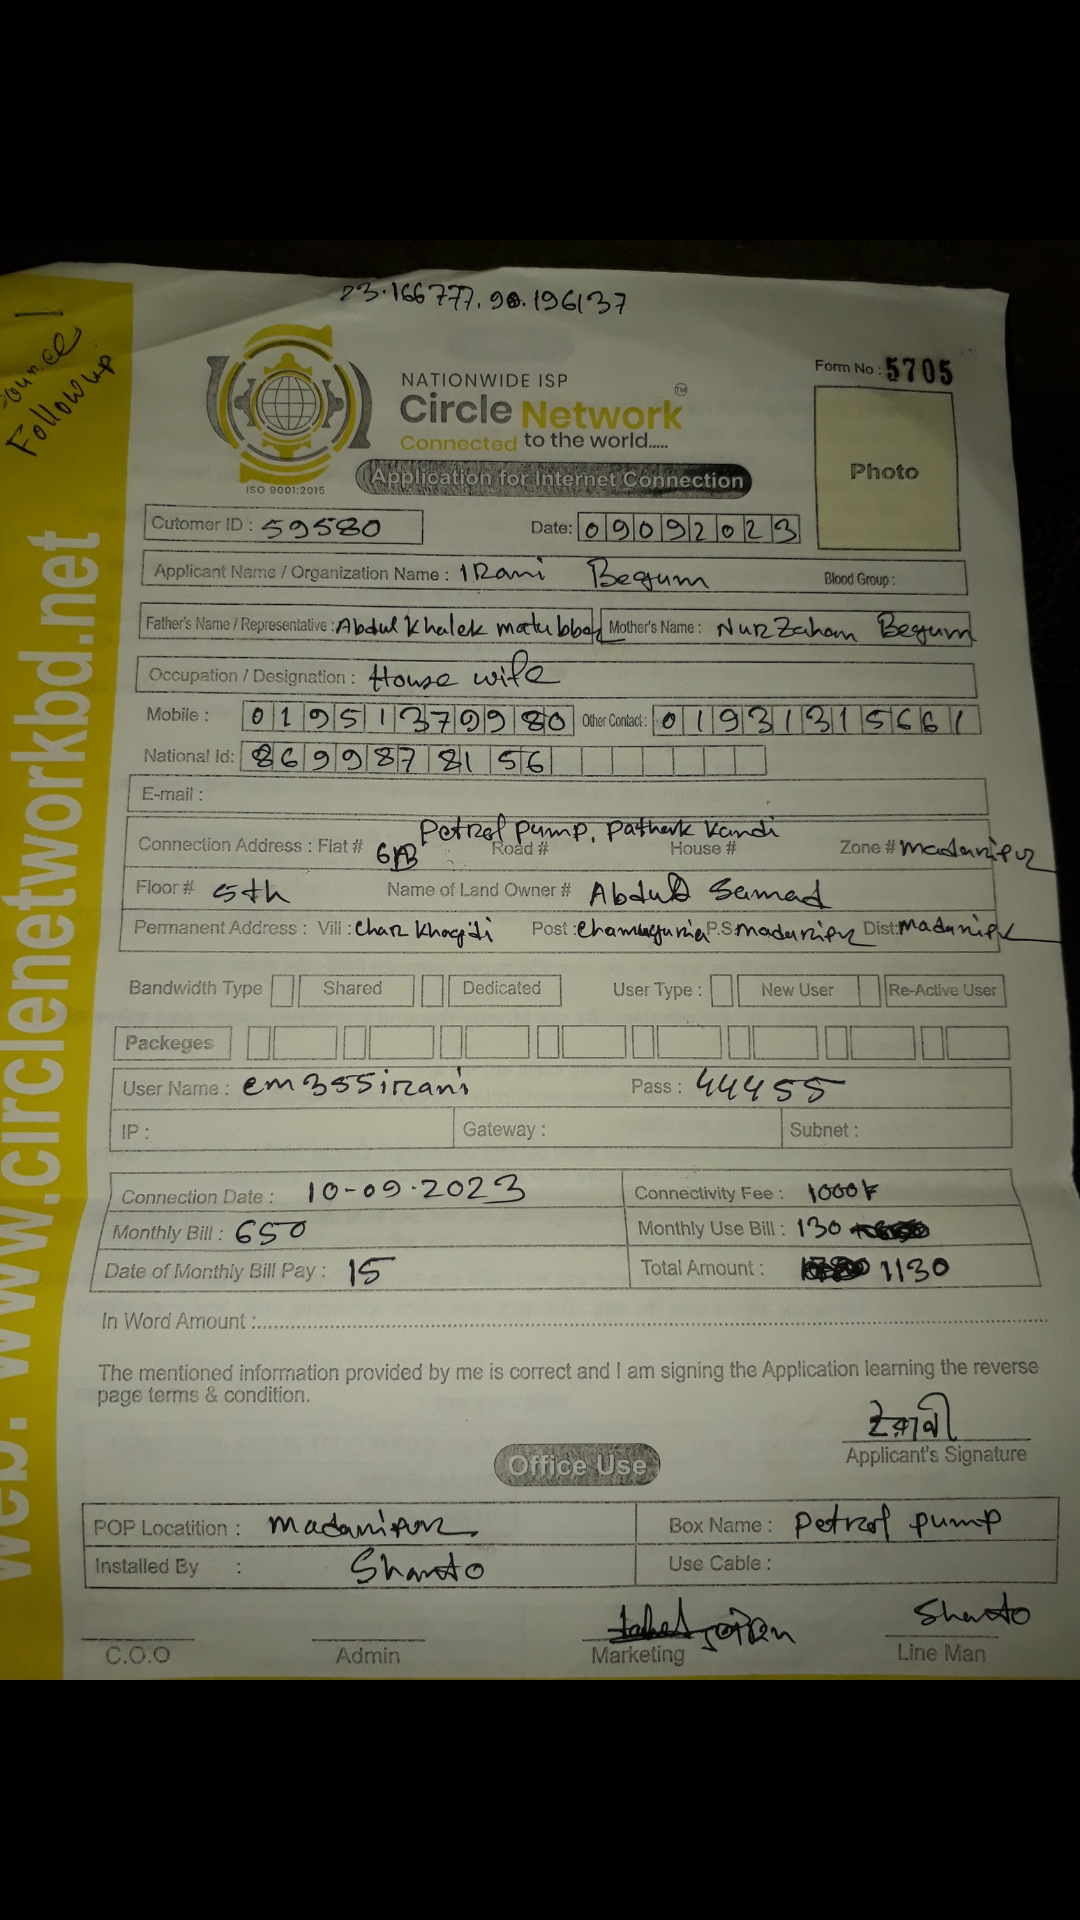 23.166777, 90.196137
Followup
NATIONWIDE ISP
Circle Network TM
Connected to the world.....
ISO 9001:2015
Application for Internet Connection
Form No : 5705
Photo
Cutomer ID : 59580
Date: 09092023
Applicant Name / Organization Name : IRani Begum Blood Group :
Father's Name / Representative : Abdul Khalek matubbar Mother's Name : NurZahan Begum
Occupation / Designation : House wife
Mobile : 01951379980 Other Contact : 01931315661
National Id: 8699878156
E-mail :
Petrol pump, Pathak Kandi
Connection Address : Flat # 6AB Road # House # Zone # madaripur
Floor # 5th Name of Land Owner # Abdul Samad
Permanent Address : Vill : Char Khagdi Post : P.S madaripur Dist: madaripur
Bandwidth Type Shared Dedicated User Type : New User Re-Active User
Packeges
User Name : em355irani Pass : 44455
IP : Gateway : Subnet :
Connection Date : 10-09-2023 Connectivity Fee : 1000৳
Monthly Bill : 650 Monthly Use Bill : 130
Date of Monthly Bill Pay : 15 Total Amount : 1130
In Word Amount :
The mentioned information provided by me is correct and I am signing the Application learning the reverse
page terms & condition.
ইরানী
Applicant's Signature
Office Use
POP Locatition : madaripur Box Name : Petrol pump
Installed By : Shanto Use Cable :
Shanto
C.O.O Admin Marketing Line Man
web: www.circlenetworkbd.net